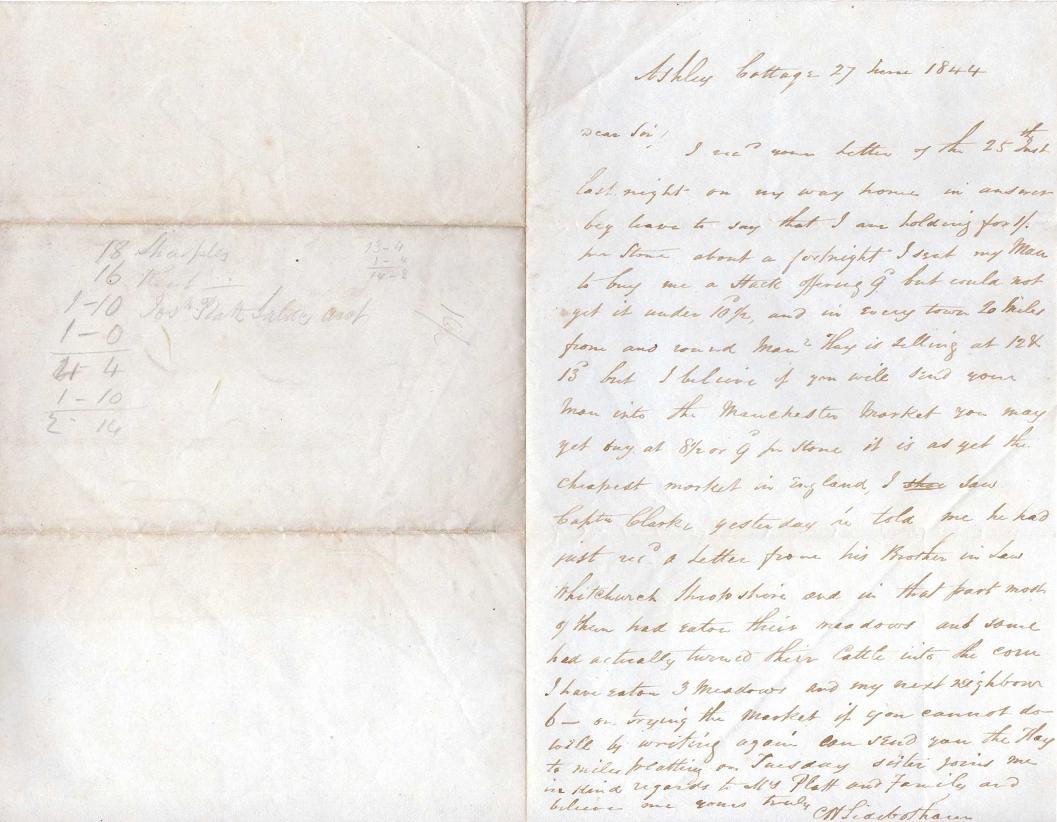 18 Sharples
16 Rent
1-10 Jos.h Platt Salary acct
1-0
4 4
1-10
2 - 14
13-4
1-4
14-8
Ashley Cottage 27 June 1844
Dear Sir!
I recd your letter of the 25th Inst
last night on my way home in answer
beg leave to say that I am holding for 1/.
per Stone about a fortnight I sent my Man
to buy me a Stack offering 9d but could not
get it under 10d½, and in every town 20 Miles
from and round Manr Hay is selling at 12 &
13d but I believe if you will send your
Man into the Manchester Market you may
yet buy at 8½ or 9d pr Stone it is as yet the
cheapest market in England, I saw
Captn Clarke yesterday he told me he had
just recd a Letter from his Brother in Law
Whitchurch Shropshire and in that part most
of them had eaten their meadows and some
had actually turned their Cattle into the corn
I have eaten 3 Meadows and my next neighbour
6 - on trying the Market if you cannot do
well by writing again can send you the Hay
to miles platting on Tuesday sister joins me
in kind regards to Mrs Platt and Family and
believe me yours truly
CN Sidebotham